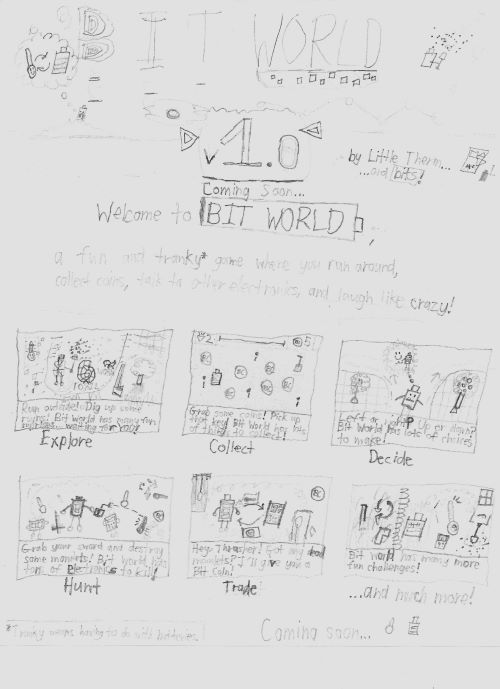 BIT WORLD
v1.0
Coming Soon...
by Little Therm...
...and bits!
Welcome to BIT WORLD...,
a fun and tranky* game where you run around,
collect coins, talk to other electronics, and laugh like crazy!
Run outside! Dig up some
ruins! Bit World has many fun
waiting for you!
Explore
2
5
BC
Grab some coins! Pick up
that key! Bit World has lots
of things to collect!
Collect
Left or right? Up or down?
Bit World has lots of choices
to make!
Decide
Grab your sword and destroy
some monsters! Bit World has
tons of Electronics to kill!
Hunt
Hey, Thrasher! Got any dead
monsters? I'll give you a
Bit Coin!
Trade
Bit World has many more
fun challenges!
...and much more!
*Tranky means having to do with batteries.
Coming soon...